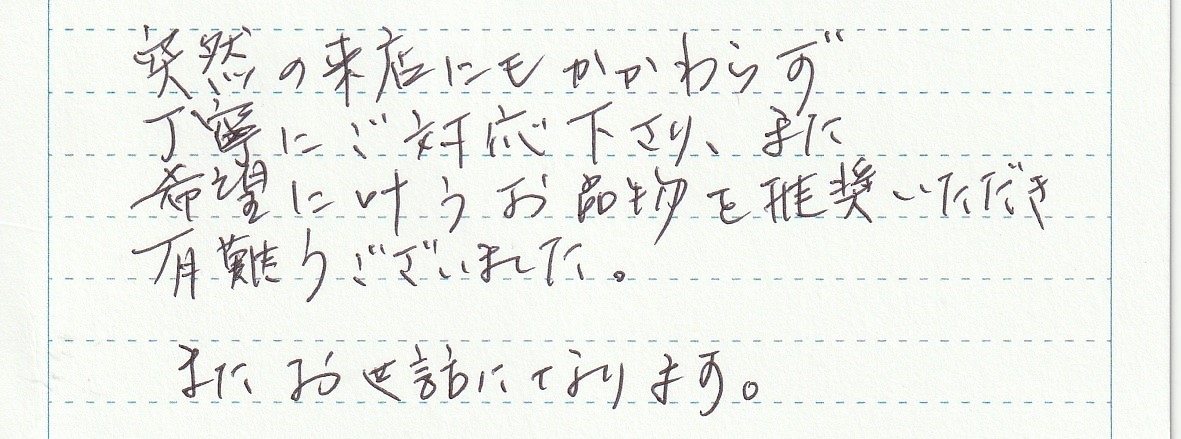 突然の来店にもかかわらず
丁寧にご対応下さり、また
希望に叶うお品物を推奨いただき
有難うございました。
またお世話になります。